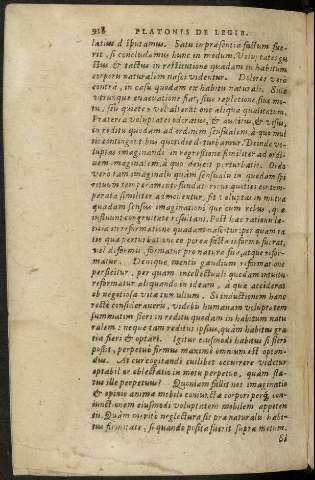 918 PLATONIS DE LEGIB.
latius disputamus. Satis in præsentia factum fue-
rit, si concludamus hunc in modum. Voluptates gu
stus & tactus in restitutione quadam in habitum
corporis naturalem nasci videntur. Dolores verò
contra, in casu quodam ex habitu naturali. Siue
vtrunque euacuatione fiat, siue repletione siue mo-
tu, siu quiete: vel alterat one aliqua qualitatum.
Præterea voluptates odoratus, & auditus, & visus,
in reditu quodam ad ordinem sensualem, à quo mul
tis contingent bus quotidie d sturbamur. Deinde vo-
luptas imaginandi in regressione similiter ad ordi-
nem imaginalem, à quo deiecti perturbatis. Ordo
vero tam imaginalis quàm sensualis in quodam spi
rituum temperamento fundatur: cuius quoties con tem-
perata similiter admouentur, fit voluptas in mutua
quadam sensus imaginationis que cum rebus, quæ
influunt congruitate resultans. Post hæc rationis læ-
titia in reformatione quadam nascitur: per quam ra
tio quæ perturbat one corporea facta informis fuerat,
vel difformis, formatur pro natura sua, atque refor-
matur. Denique mentis gaudium reformat one
perficitur, per quam intellectuali quodam intuitu
reformatur aliquando in ideam, à qua acciderat
ob negotiosa vitæ tumultum. Si inductionem hanc
rectè consideraueris, videbis humanam voluptatem
summatim fieri in reditu quodam in habitum natu
ralem: neque tam reditus ipsius, quàm habitus gra
tia fieri & optari. Igitur eiusmodi habitus si fieri
possit, perpetuò firmus maximè omnium est optan-
dus. At cur cogitandi cuilibet occurrere videtur
optabil or oblectatio in motu perpetuo, quàm sta-
tus ille perpetuus? Quoniam fallit nos imaginatio
& opinio anima mobili comunctæ corpori perq́; con-
iunctionem eiusmodi voluptatem mobilem appeten
tis. Quàm meritò neglectura sit præ naturali habi-
tus firmitate, si quando posita fuerit supra motum.
Si